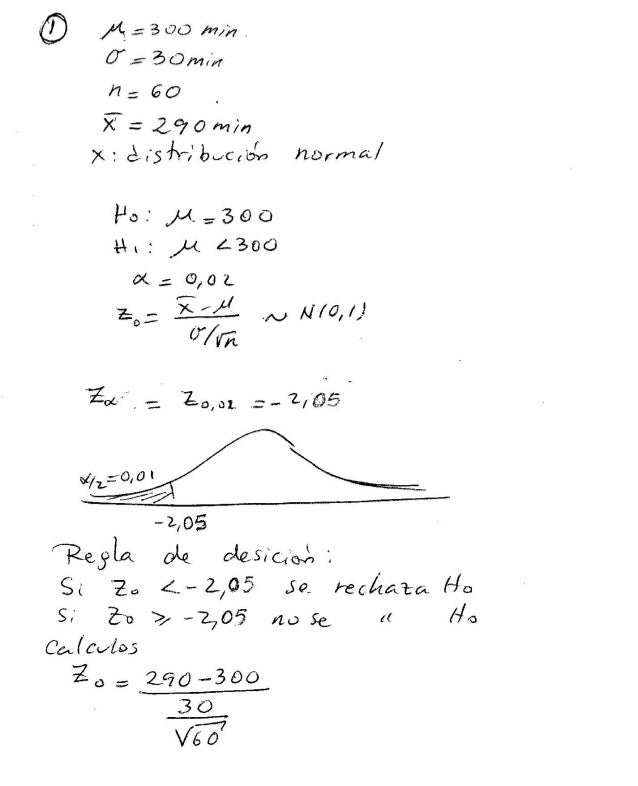 ① μ = 300 min.
σ = 30min
n = 60
x̄ = 290 min
x: distribución normal
H₀: μ = 300
H₁: μ < 300
α = 0,02
z₀ = (x̄ - μ) / (σ/√n) ~ N(0,1)
Zα = Z₀,₀₂ = - 2,05
α/2 = 0,01
-2,05
Regla de desición:
Si Z₀ < -2,05 se rechaza H₀
Si Z₀ ⩾ -2,05 no se " H₀
Calculos
Z₀ = (290 - 300) / (30 / √60)